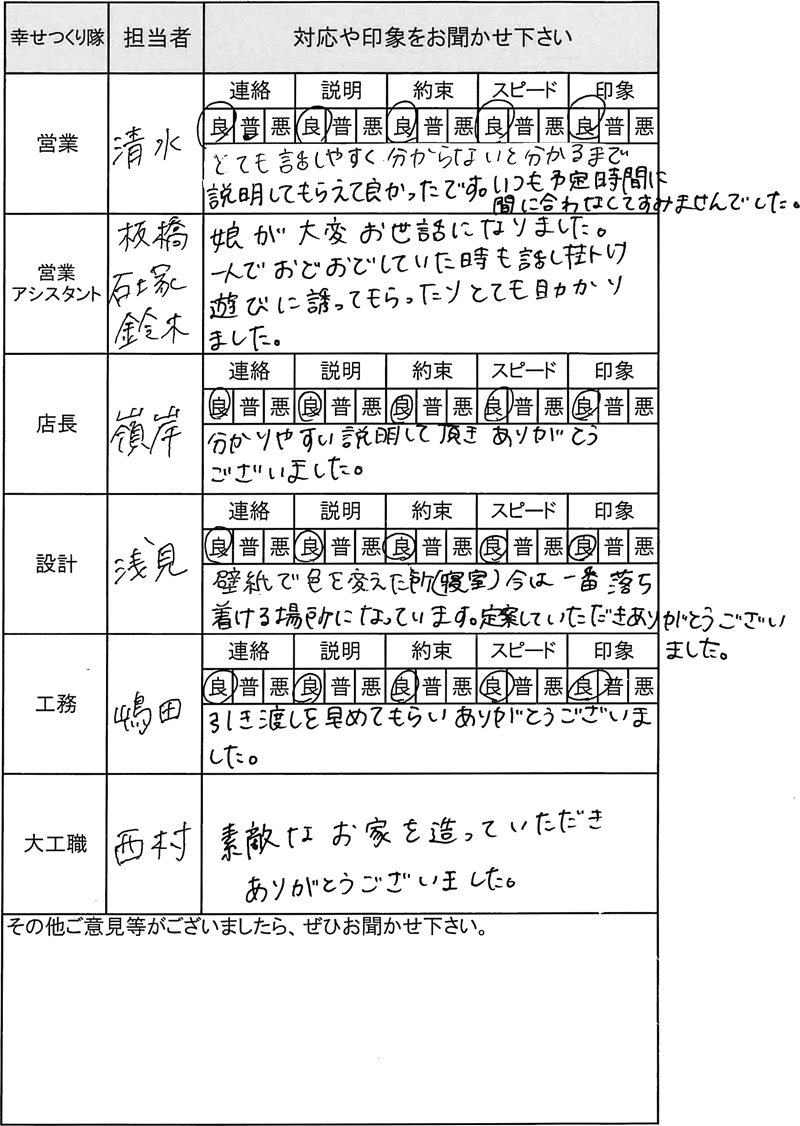 幸せつくり隊 担当者 対応や印象をお聞かせ下さい
営業 清水
連絡 説明 約束 スピード 印象
良 普 悪 良 普 悪 良 普 悪 良 普 悪 良 普 悪
とても話しやすく分からないと分かるまで
説明してもらえて良かったです。いつも予定時間に
間に合わなくてすみませんでした。
営業
アシスタント
板橋
石塚
鈴木
娘が大変お世話になりました。
一人でおどおどしていた時も話し掛け
遊びに誘ってもらったりとても助かり
ました。
店長 嶺岸
連絡 説明 約束 スピード 印象
良 普 悪 良 普 悪 良 普 悪 良 普 悪 良 普 悪
分かりやすい説明して頂きありがとう
ございました。
設計 浅見
連絡 説明 約束 スピード 印象
良 普 悪 良 普 悪 良 普 悪 良 普 悪 良 普 悪
壁紙で色を変えた所(寝室)今は一番落ち
着ける場所になっています。定案していただきありがとうござい
ました。
工務 嶋田
連絡 説明 約束 スピード 印象
良 普 悪 良 普 悪 良 普 悪 良 普 悪 良 普 悪
引き渡しを早めてもらいありがとうございま
した。
大工職 西村
素敵なお家を造っていただき
ありがとうございました。
その他ご意見等がございましたら、ぜひお聞かせ下さい。